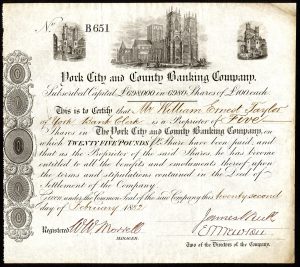 No. B651
York City and County Banking Company.
Subscribed Capital, £698,900 in 6989 Shares of £100 each.
This is to Certify that Mr. William Ernest Taylor
of York Bank Clerk is a Proprietor of FIVE
Shares in The York City and County Banking Company, on
which TWENTY FIVE POUNDS Share have been paid, and
that as the Proprietor of the said Shares he has become
entitled to all the benefits and emoluments thereof upon
the terms and stipulations contained in the Deed of
Settlement of the Company.
Given under the Common Seal of the said Company this twenty second
day of February 1882
Registered
MANAGER.
Two of the Directors of the Company.